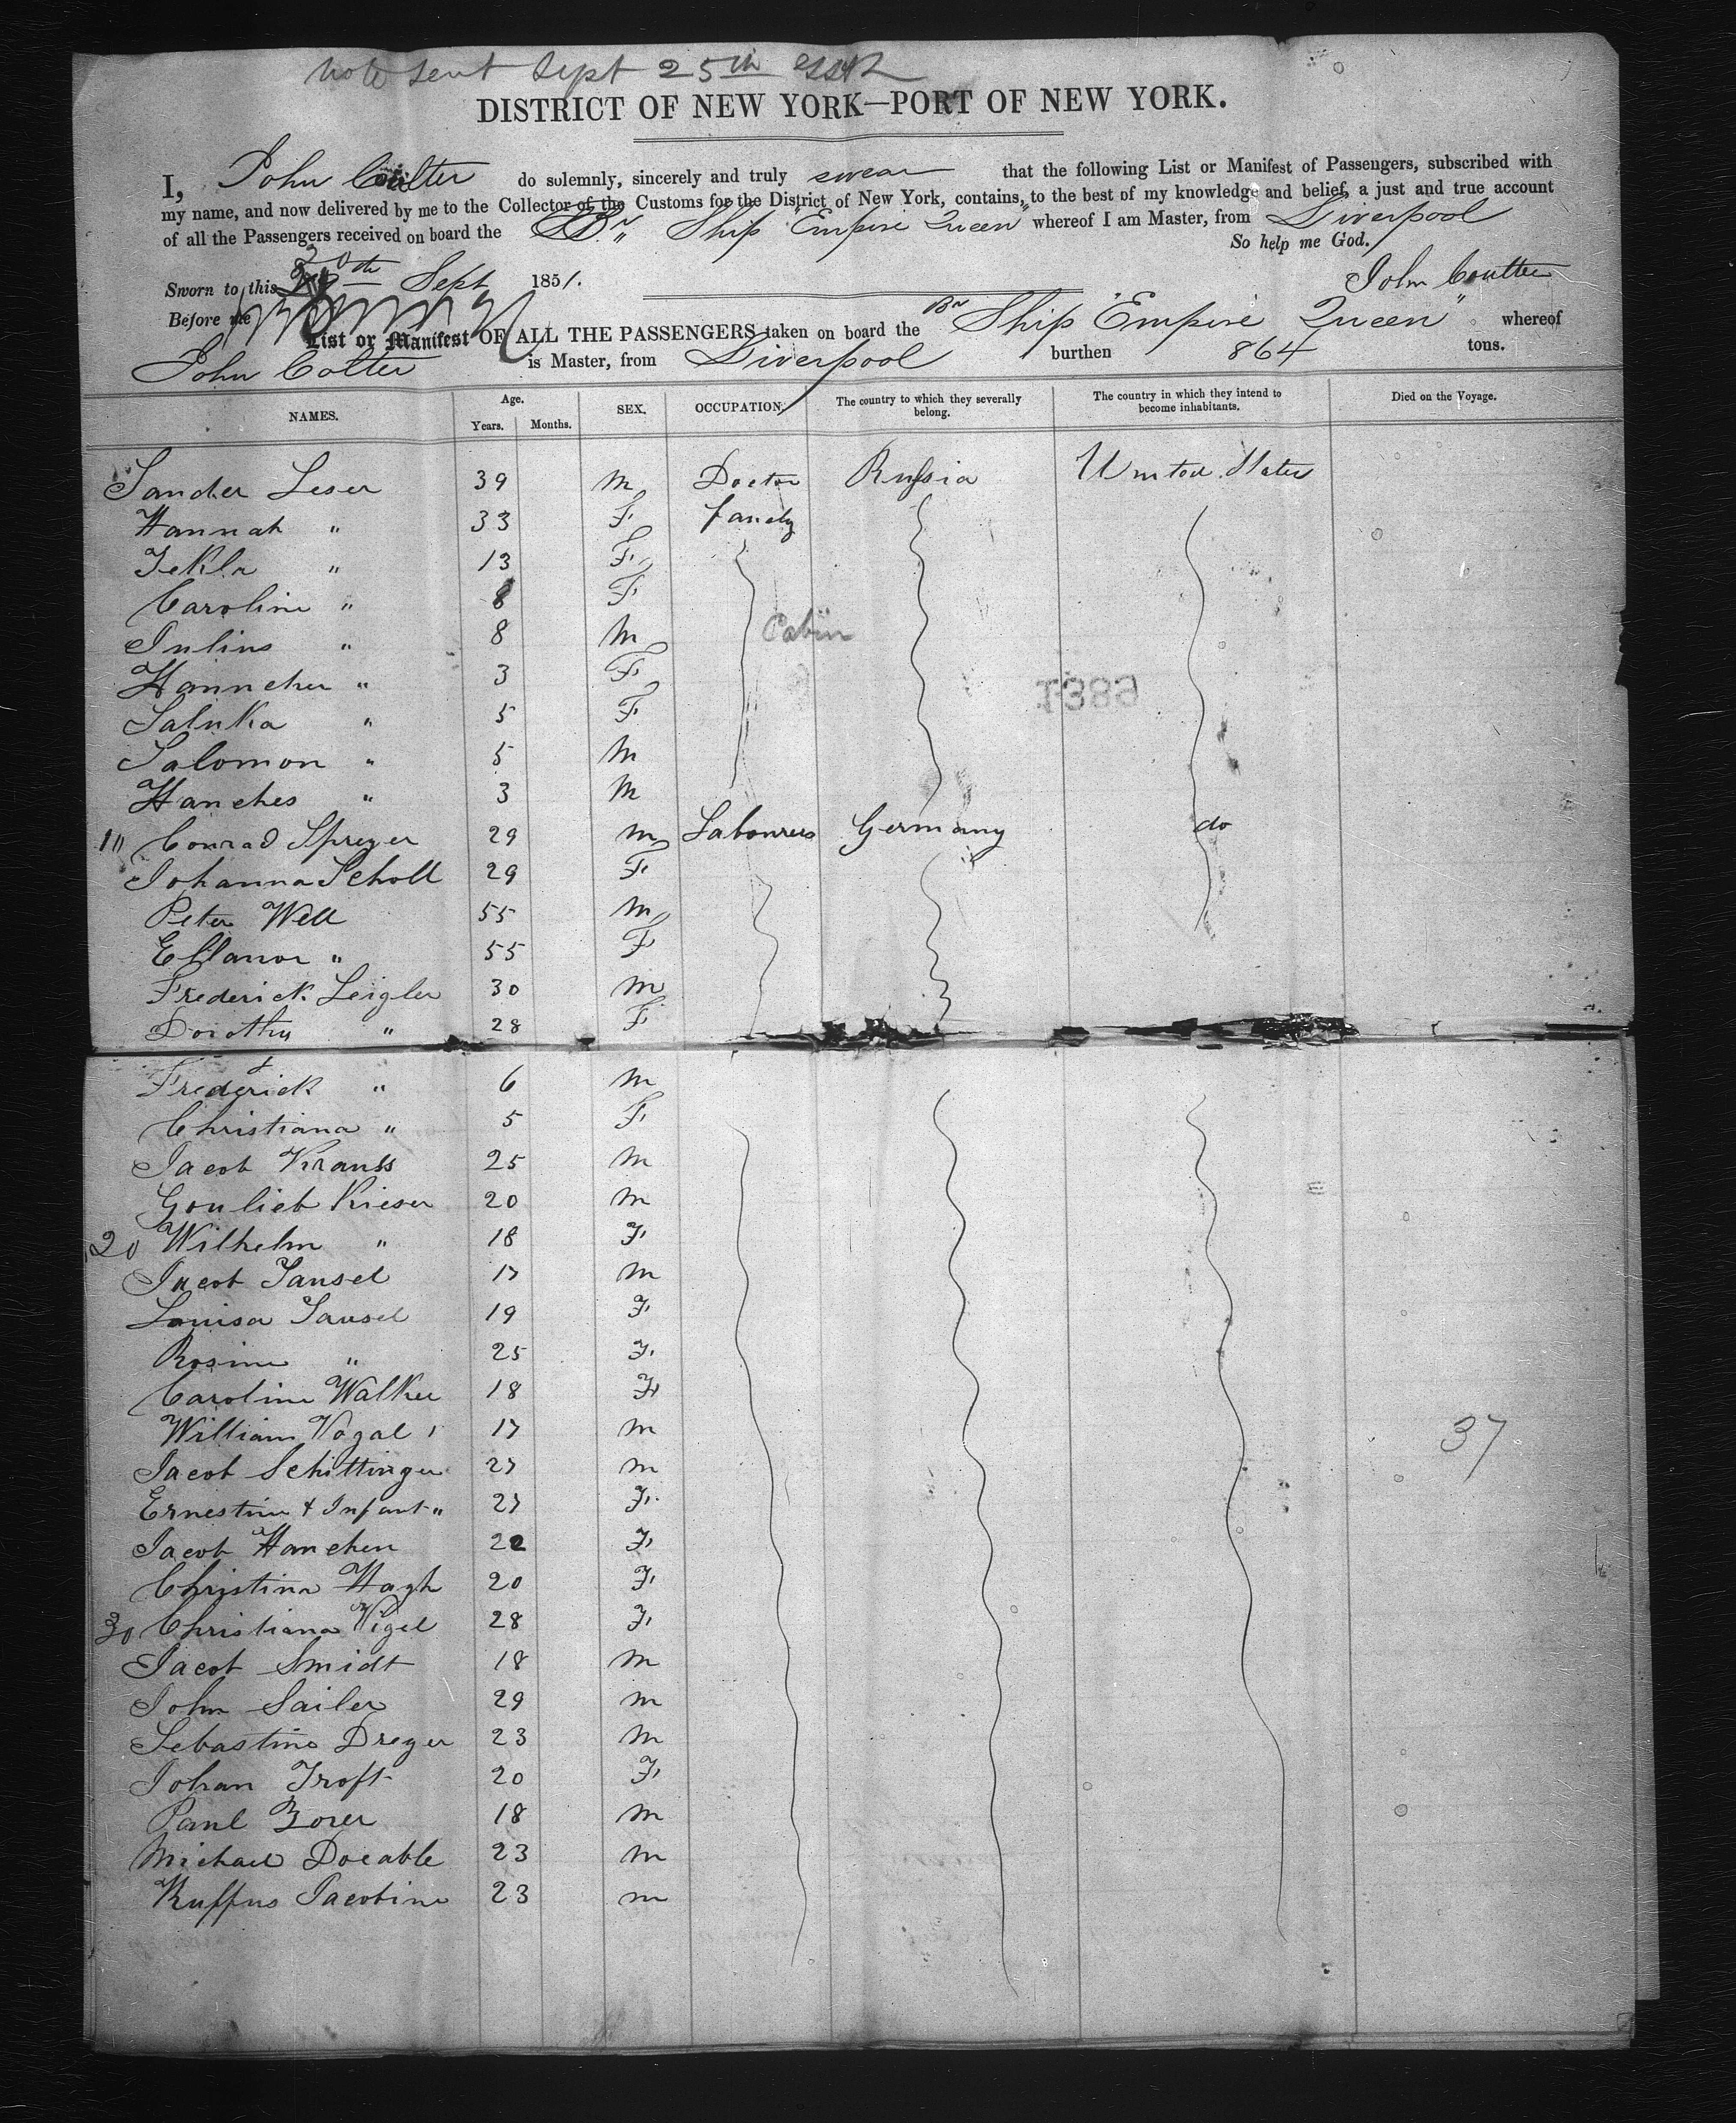 Note sent Sept 25th
DISTRICT OF NEW YORK—PORT OF NEW YORK.
I, John Coulter do solemnly, sincerely and truly swear that the following List or Manifest of Passengers, subscribed with
my name, and now delivered by me to the Collector of the Customs for the District of New York, contains, to the best of my knowledge and belief, a just and true account
of all the Passengers received on board the Br Ship "Empire Queen" whereof I am Master, from Liverpool
So help me God.
Sworn to this 20th Sept 1851.
John Coulter
Before me
List or Manifest OF ALL THE PASSENGERS taken on board the Br Ship "Empire Queen" whereof
John Colter is Master, from Liverpool burthen 864 tons.
NAMES. Age. Years. Months. SEX. OCCUPATION. The country to which they severally belong. The country in which they intend to become inhabitants. Died on the Voyage.
Sander Leser 39 M Doctor Russia United States
Hannah " 33 F family
Tekla " 13 F
Caroline " 8 F
Julius " 8 M
Cabin
Hannchen " 3 F
1389
Saluka " 5 F
Salomon " 5 M
Hanches " 3 M
Conrad Spreyer 29 M Labourers Germany do
Johanna Scholl 29 F
Peter Well 55 M
Ellanor " 55 F
Frederick Leigler 30 M
Dorothy " 28 F
Frederick " 6 M
Christiana " 5 F
Jacob Krauss 25 M
Goulieb Kieser 20 M
20 Wilhelm " 18 F
Jacob Sansel 17 M
Louisa Sansel 19 F
Rosine " 25 F
Caroline Walker 18 F
William Vogal 17 M
37
Jacob Schittinger 27 M
Ernestine & Infant " 27 F
Jacob Hanchen 22 F
Christina Hagh 20 F
30 Christiana Vigel 28 F
Jacob Smidt 18 M
John Sailer 29 M
Sebastino Dreyer 23 M
Johan Troft 20 F
Paul Zorer 18 M
Michael Doeable 23 M
Ruffus Jacobine 23 M